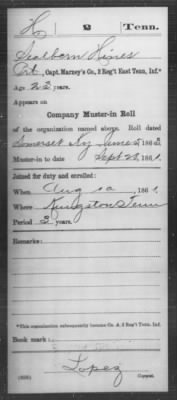 H | 2 | Tenn.
Sealborn Hines
Pvt, Capt. Marney's Co., 2 Reg't East Tenn. Inf.*
Age 22 years.
Appears on
Company Muster-in Roll
of the organization named above. Roll dated
Somerset Ky June 2, 1862
Muster-in to date Sept 28, 1861.
Joined for duty and enrolled:
When Aug 10, 1861.
Where Kingston Tenn
Period 3 years.
Remarks:
*This organization subsequently became Co. A, 2 Reg't Tenn. Inf.
Book mark:
Lopez
(358) Copyist.